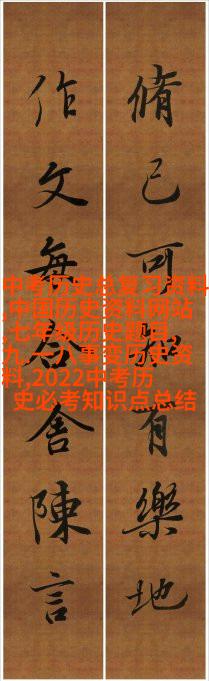 脩己可有樂地
作文無舍陳言
中考历史总复习资料
,中国历史资料网站
,七年级历史题目,
九一八事变历史资
料,2022中考历
史必考知识点总结